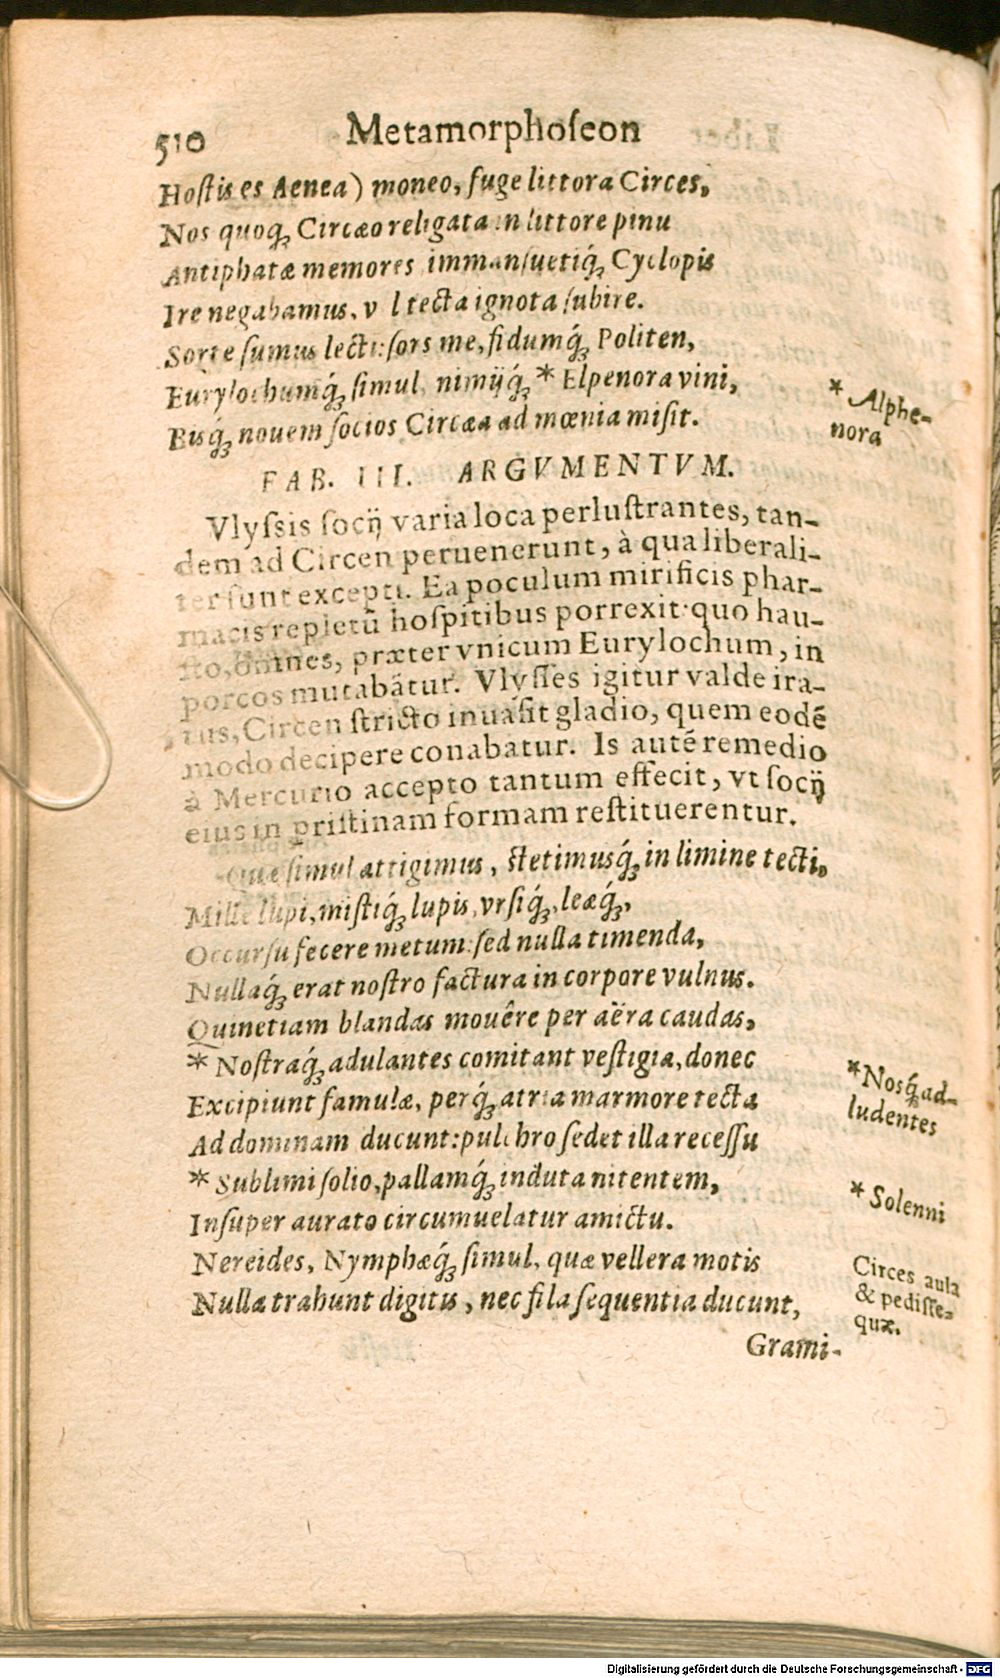 510 Metamorphoſeon
Hoſtis es Aenea) moneo, fuge littora Circes,
Nos quoq; Circæo religata in littore pinu
Antiphatæ memores immanſuetiq́; Cyclopis
Ire negabamus, v l tecta ignota ſubire.
Sorte ſumus lecti: ſors me, fidumq́; Politen,
Eurylochumq́; ſimul, nimijq́; * Elpenora vini,
Bisq́; nouem ſocios Circæa ad mœnia miſit.
* Alphe-
nora
FAB. III. ARGVMENTVM.
Vlyſsis ſocij varia loca perluſtrantes, tan-
dem ad Circen peruenerunt, à qua liberali-
ter ſunt excepti. Ea poculum mirificis phar-
macis repletũ hoſpitibus porrexit: quo hau-
ſto, omnes, præter vnicum Eurylochum, in
porcos mutabãtur. Vlyſſes igitur valde ira-
tus, Circen ſtricto inuaſit gladio, quem eodẽ
modo decipere conabatur. Is autẽ remedio
à Mercurio accepto tantum effecit, vt ſocij
eius in priſtinam formam reſtituerentur.
Quæ ſimul attigimus, ſtetimusq́; in limine tecti,
Mille lupi, miſtiq́; lupis, vrſiq́;, leæq́;,
Occurſu fecere metum: ſed nulla timenda,
Nullaq́; erat noſtro factura in corpore vulnus.
Quinetiam blandas mouêre per aëra caudas,
* Noſtraq́; adulantes comitant veſtigia, donec
Excipiunt famulæ, perq́; atria marmore tecta
Ad dominam ducunt: pulchro ſedet illa receſſu
* Sublimi ſolio, pallamq́; induta nitentem,
Inſuper aurato circumuelatur amictu.
Nereides, Nymphæq́; ſimul, quæ vellera motis
Nulla trahunt digitis, nec fila ſequentia ducunt,
*Nosq́; ad-
ludentes
* Solenni
Circes aula
& pediſſe-
quæ.
Grami-
Digitalisierung gefördert durch die Deutsche Forschungsgemeinschaft - DFG